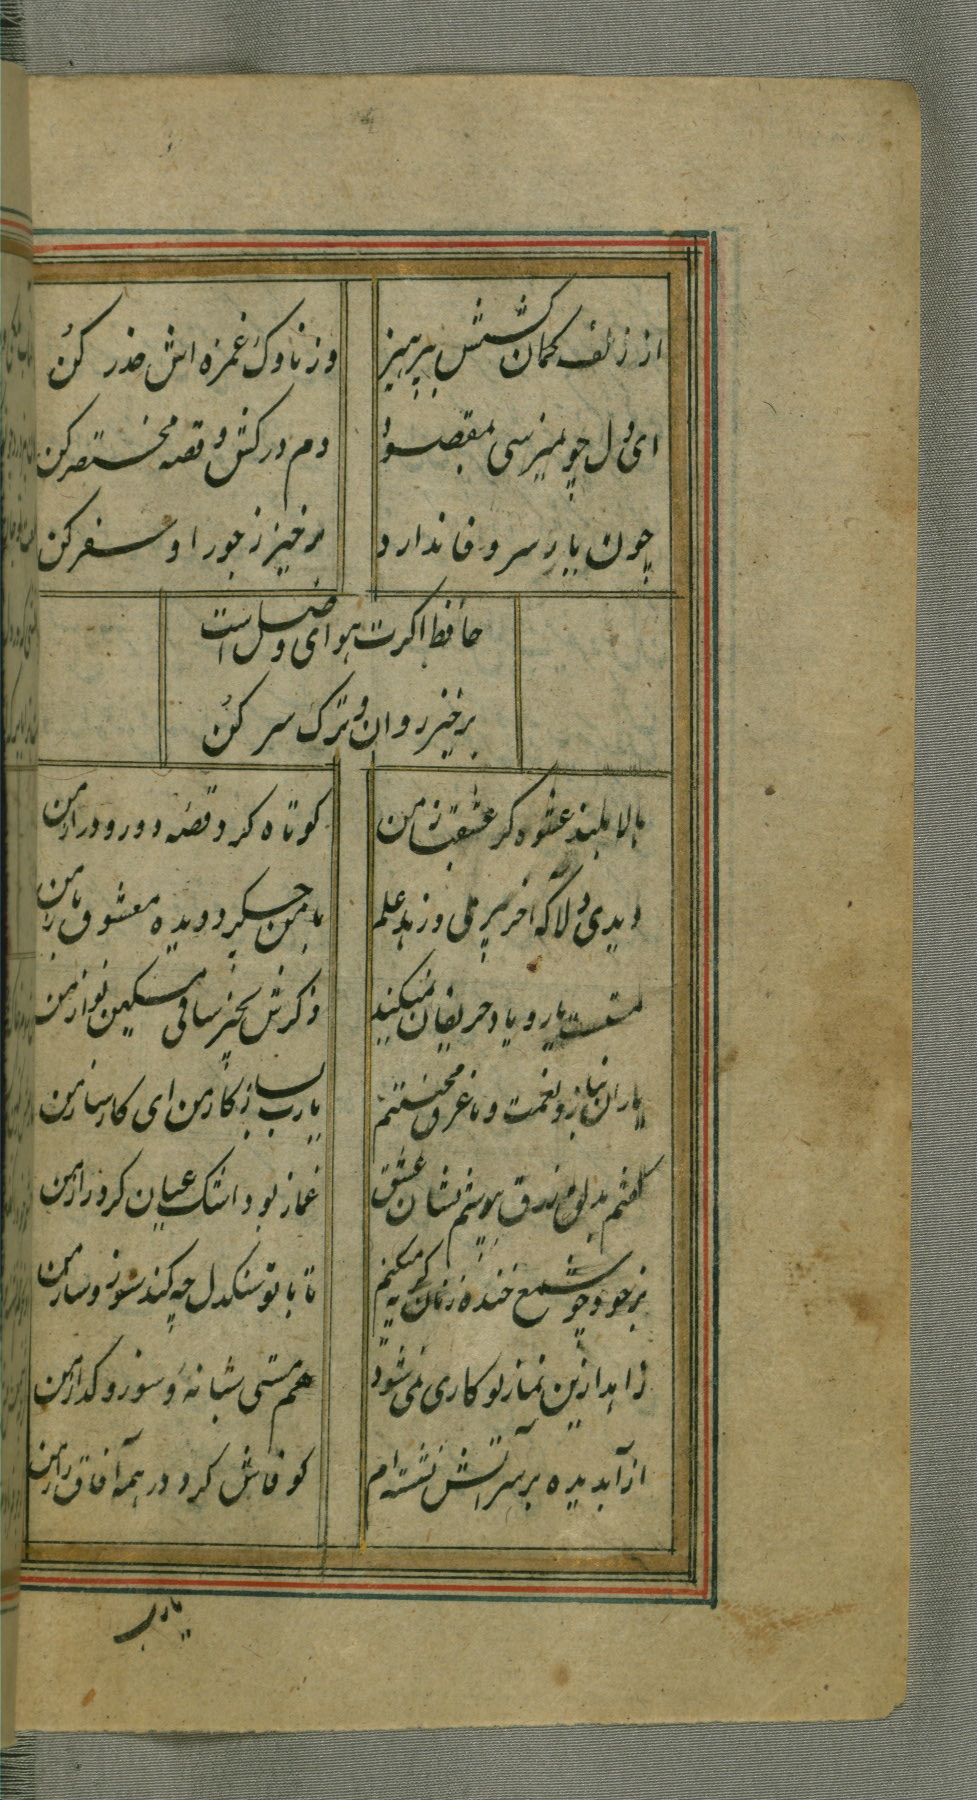 از زلف کمان کشش بپرهیز
وز ناوک غمزه اش حذر کن
ای دل چو نمیرسی بمقصود
دم درکش و قصه مختصر کن
چون یار سر وفا ندارد
برخیز ز جور او سفر کن
حافظ اگرت هوای وصل است
برخیز روان و ترک سر کن
بالا بلند عشوه گر عشقباز من
کوتاه کرد قصه دور و دراز من
دیدی دلا که آخر پیری و زهد علم
با من چه کرد دیده معشوق باز من
مستست یار و یاد حریفان نمیکند
ذکرش بخیر ساقی مسکین نواز من
یاران بناز و نعمت و ما غرق محنتیم
یارب بساز کار من ای کارساز من
گفتم بدلق زرق بپوشم نشان عشق
غماز بود اشک عیان کرد راز من
بر خود چو شمع خنده زنان گریه میکنم
تا با تو سنکدل چه کند سوز و ساز من
زاهد ازین نماز تو کاری نمی شود
هم مستی شبانه و سوز و گداز من
از آب دیده بر سر آتش نشسته ام
کو فاش کرد در همه آفاق راز من
یارب